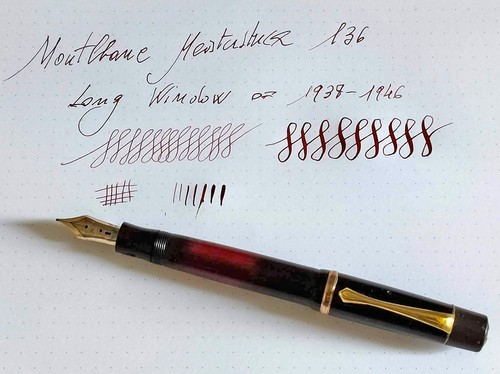 Montblanc Meisterstück 136
Long Window 1938-1946